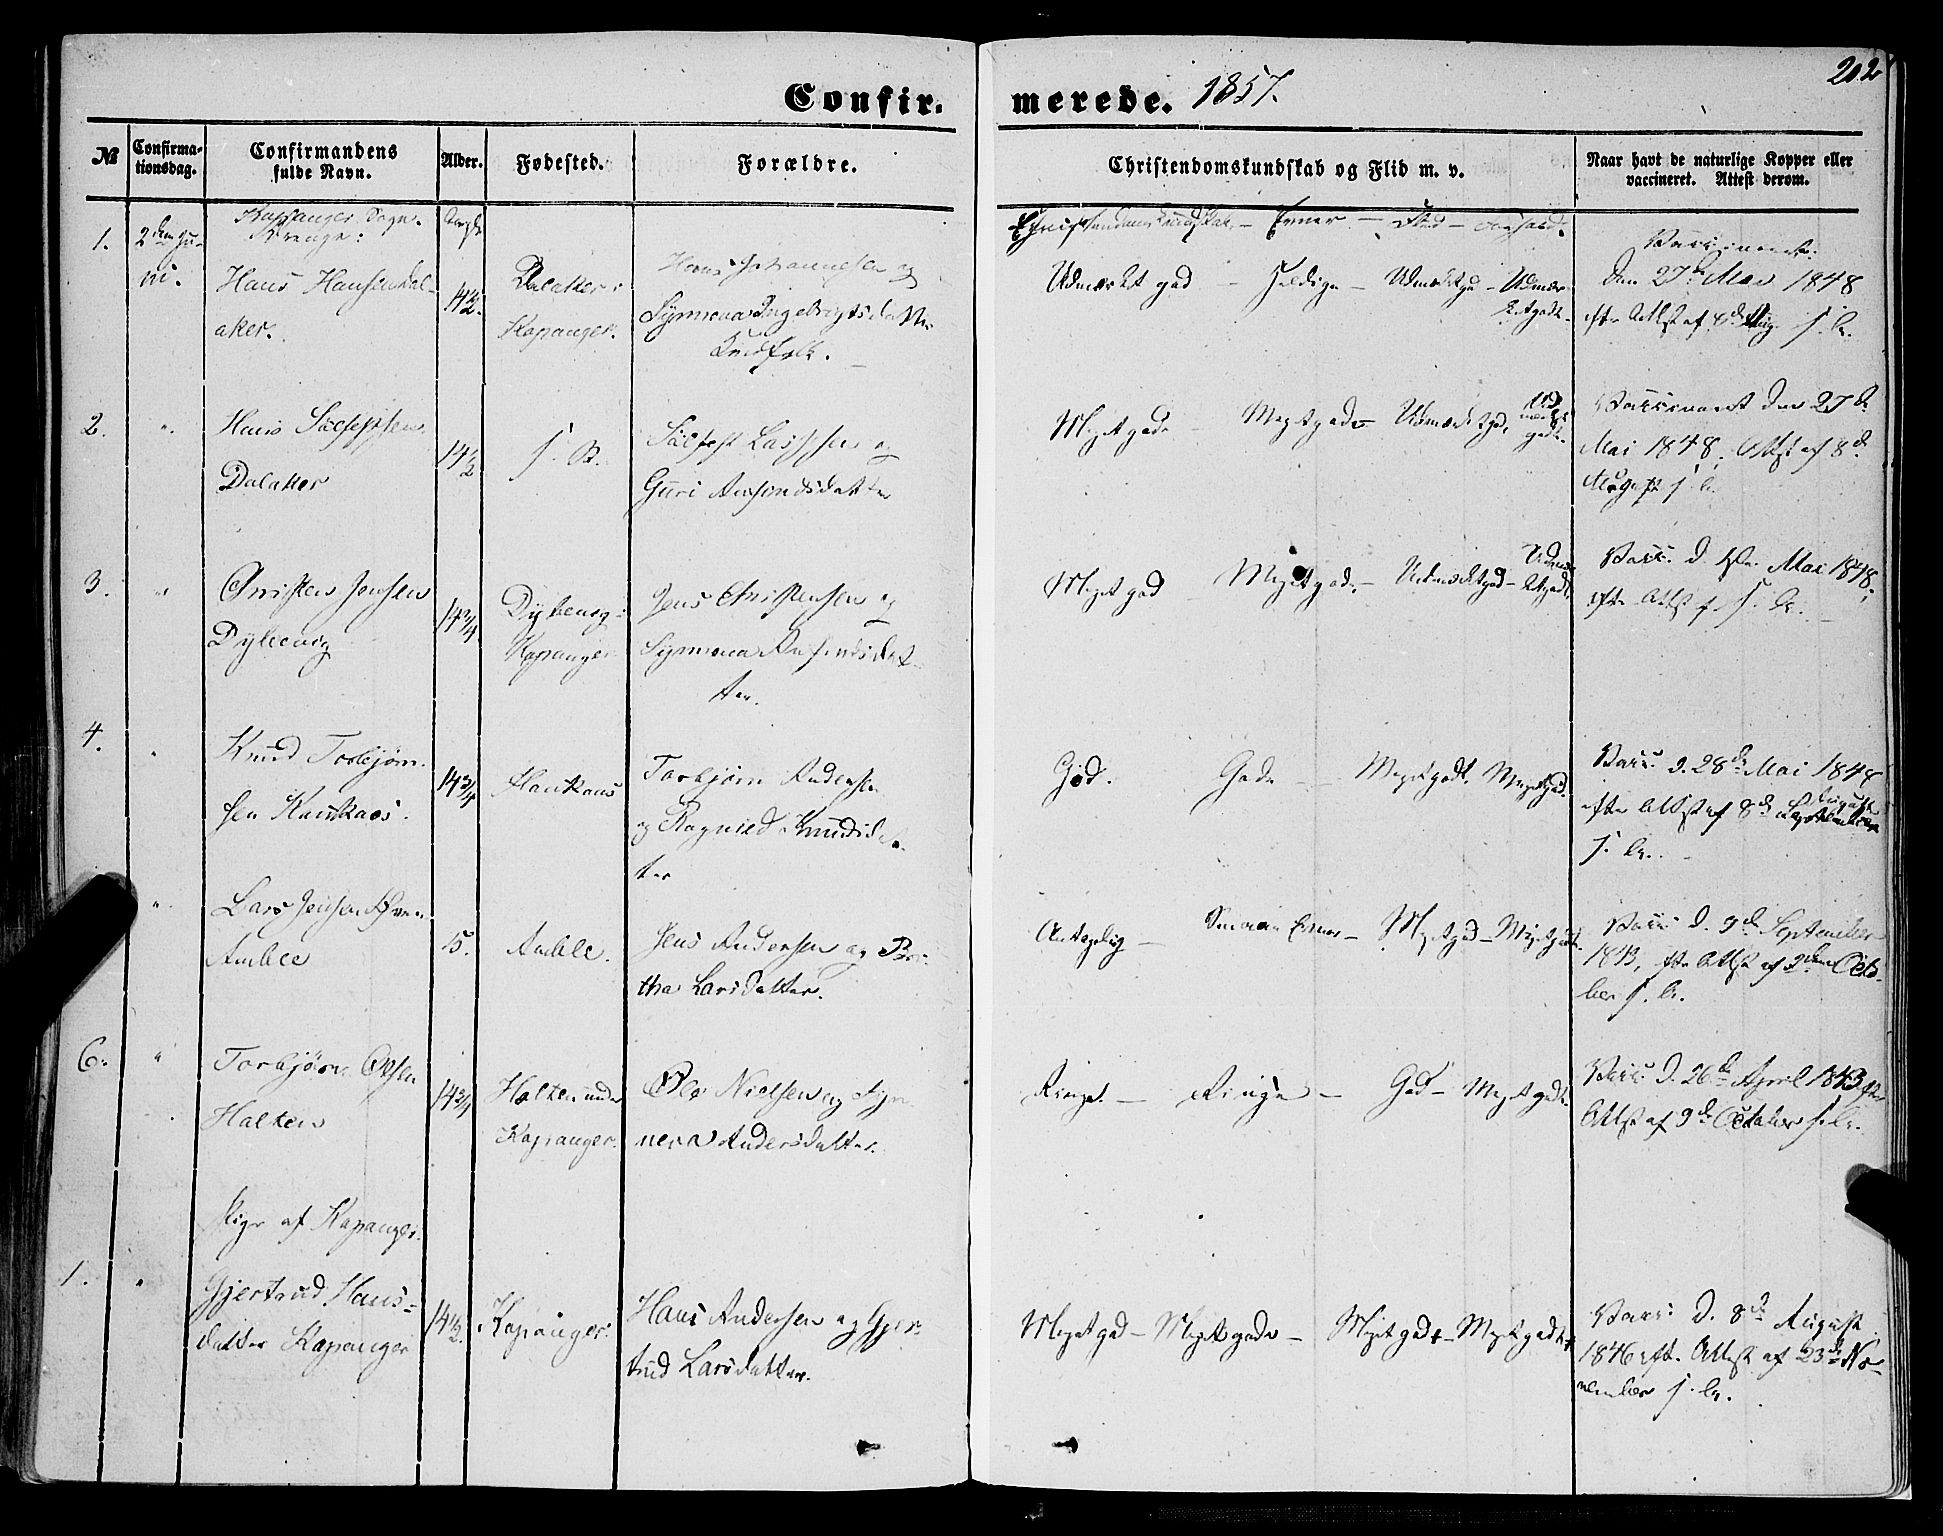 202
Confirmerede. 1857.
№
Confirmationsdag.
Confirmandens fulde Navn.
Alder.
Fødested.
Forældre.
Christendomskundskab og Flid m. v.
Naar havt de naturlige Kopper eller vaccineret. Attest derom.
Kapsanger Sogn.
Drenge:
Christendomskundskab — Evner — Flid —
1.
2den Juni.
Hans Hansen Dalaker.
14½.
Dalaker :
Kapanger.
Hans Johannesen og
Synneva Ingebrigtsdatter
Udmærket god — Heldige — Udmærket god — Udmærketgodt.
Vaccineret
den 27de Mai 1848
efter Attest af 8de Aug. s. A.
2.
"
Hans
Dalaker
14½
s. St.
og
Guri Amundsdatter
Meget god — Meget gode — Udmærket god, Udmærket godt.
Vaccineret den 27de
Mai 1848, Attest af 8de
August s. A.
3.
"
Christen Jensen
Dybevig
14¾
Dybevig :
Kapanger
Jens Christensen og
Synneva
ter.
Meget god — Meget gode. — Udmærket god — Udmærketgodt.
Vacc. d. Mai 1848,
efter Attest f. s. A.
4.
"
Knud Torbjørnsen
14¾
Torbjørn Andersen
og Ragnild Knudsdatter
God. Gode — Meget godt. Meget god.
Vacc. d. 28de Mai 1848
efter Attest af 8de August
s. A.
"
Lars Jensen
Amble
15.
Amble.
Jens Andersen og Bertha Larsdatter.
Antagelig — Smaa Evner — Meget god — Meget godt.
Vacc. d. 9de September
1843, efter Attest af 9den October s. A.
6.
"
Torbjørn Olsen
Halten
14¾
Halten under
Kapanger.
Ole Nielsen og Synneva Andersdatter.
Ringe. — Ringe — God — Meget godt.
Vacc. d. 26de April 1843 efter
Attest af 9de October s. A.
Pige af Kapanger.
1.
"
Gjertrud Hansdatter Kapanger
14½.
Kapanger.
Hans Andersen og Gjertrud Larsdatter.
Meget god — Meget gode — Meget god — Meget godt.
Vacc. d. 8de August
1846 eft. Attest af 23de November s. A.